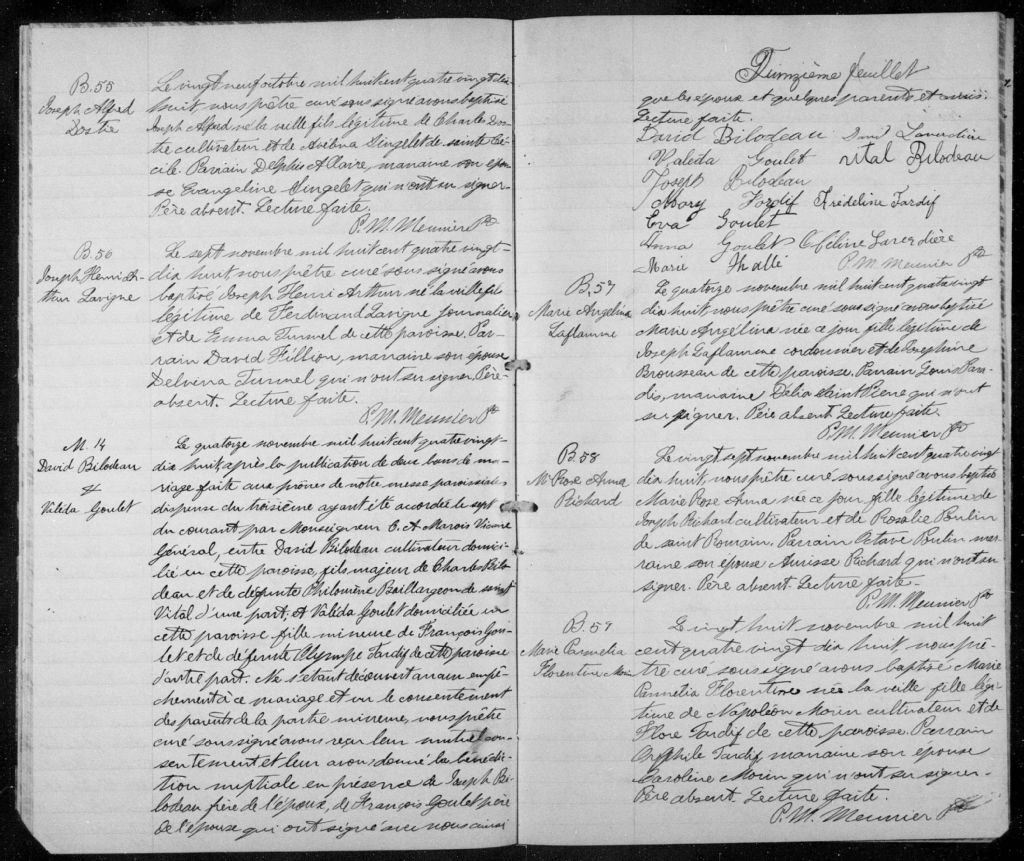 B. 55
Joseph Alfred
Dostie
Le vingt neuf octobre mil huit cent quatre vingt dix
huit, nous prêtre curé sous signé avons baptisé
Joseph Alfred né la veille fils légitime de Charles Dos-
tie cultivateur et de Avelina Lingelet de sainte Cé-
cile. Parrain Delphis Allaire, marraine son épou-
se Evangeline Lingelet qui n'ont su signer.
Père absent. Lecture faite.
P. M. Meunier Ptre
B. 56
Joseph Henri Ar-
thur Lavigne
Le sept novembre mil huit cent quatre vingt-
dix huit, nous prêtre curé sous signé avons
baptisé Joseph Henri Arthur né la veille fils
légitime de Ferdinand Lavigne journalier
et de Emma Turmel de cette paroisse. Par-
rain David Fillion, marraine son épouse
Delvina Turmel qui n'ont su signer. Père
absent. Lecture faite.
P. M. Meunier Ptre
M. 14
David Bilodeau
&
Valéda Goulet
Le quatorze novembre mil huit cent quatre vingt-
dix huit après la publication de deux bans de ma-
riage faite aux prônes de notre messe paroissiale
dispense du troisième ayant été accordée le sept
du courant par Monseigneur C. A. Marois Vicaire
Général, entre David Bilodeau cultivateur domici-
lié en cette paroisse, fils majeur de Charles Bilo-
deau et de défunte Philomène Baillargeon de saint
Vital d'une part; et Valéda Goulet domiciliée en
cette paroisse fille mineure de François Gou-
let et de défunte Olympe Tardif de cette paroisse
d'autre part. Ne s'étant découvert aucun empê-
chement à ce mariage et vu le consentement
des parents de la partie mineure, nous prêtre
curé sous signé avons reçu leur mutuel con-
sentement et leur avons donné la bénédic-
tion nuptiale en présence de Joseph Bi-
lodeau frère de l'époux, de François Goulet père
de l'épouse qui ont signé avec nous ainsi
feuillet
que les époux et quelques parents et amis.
Lecture faite.
David Bilodeau
Valéda Goulet Vital Bilodeau
Joseph Bilodeau
Tardif Fredeline Tardif
Eva Goulet
Anna Goulet
Marie P. M. Meunier Ptre
B. 57
Marie Angelina
Laflamme
Le quatorze novembre mil huit cent quatre vingt
dix huit, nous prêtre curé sous signé avons baptisé
Marie Angélina née ce jour fille légitime de
Joseph Laflamme cordonnier et de Joséphine
Brousseau de cette paroisse. Parrain Louis Para-
dis, marraine Délia Saint Pierre qui n'ont
su signer. Père absent. Lecture faite.
P. M. Meunier Ptre
B. 58
Mie Rose Anna
Richard
Le vingt sept novembre mil huit cent quatre vingt
dix huit, nous prêtre curé sous signé avons baptisé
Marie Rose Anna née ce jour, fille légitime de
Joseph Richard cultivateur et de Rosalie Poulin
de saint Romain. Parrain Octave Poulin mar-
raine son épouse Anisse Richard qui n'ont su
signer. Père absent. Lecture faite.
P. M. Meunier Ptre
B. 59
Marie Parmelia
Florentine Morin
Le vingt huit novembre mil huit
cent quatre vingt dix huit, nous prê-
tre curé sous signé avons baptisé Marie
Parmelia Florentine née la veille fille légi-
time de Napoléon Morin cultivateur et de
Flore Tardif de cette paroisse. Parrain
Théophile Tardif marraine son épouse
Caroline Morin qui n'ont su signer.
Père absent. Lecture faite.
P. M. Meunier Ptre